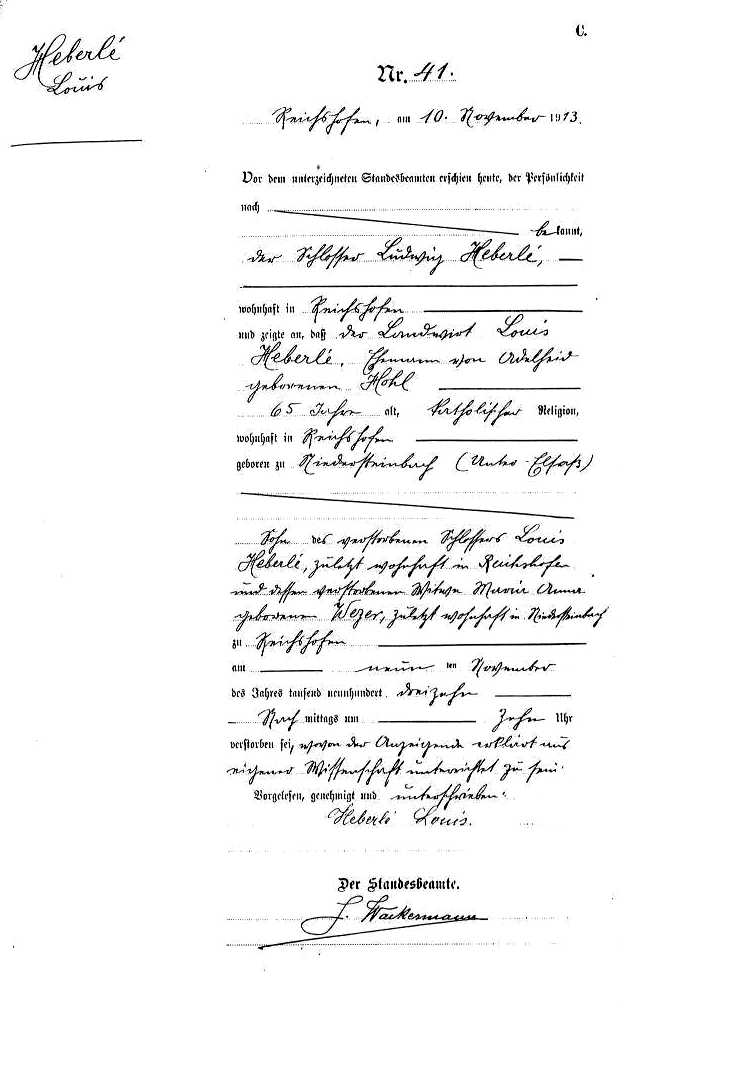 C.
Heberlé
Louis
Nr. 41.
Reichshofen, am 10. November 1913.
Vor dem unterzeichneten Standesbeamten erschien heute, der Persönlichkeit
nach
bekannt,
der Schlosser Ludwig Heberlé,
wohnhaft in Reichshofen
und zeigte an, daß der Landwirt Louis
Heberlé, Ehemann von Adelheid
geborenen Hohl
65 Jahre alt, katholischer Religion,
wohnhaft in Reichshofen
geboren zu Niedersteinbach (Unter-Elsaß)
Sohn des verstorbenen Schlossers Louis
Heberlé, zuletzt wohnhaft in Reichshofen
und dessen verstorbenen Witwe Maria Anna
geborenen Wezer, zuletzt wohnhaft in Niedersteinbach
zu Reichshofen
am neun ten November
des Jahres tausend neunhundert dreizehn
Nach mittags um zehn Uhr
verstorben sei, wovon der Anzeigende erklärt aus
eigener Wissenschaft unterrichtet zu sein.
Vorgelesen, genehmigt und unterschrieben:
Heberlé Louis.
Der Standesbeamte.
J. Wackermann